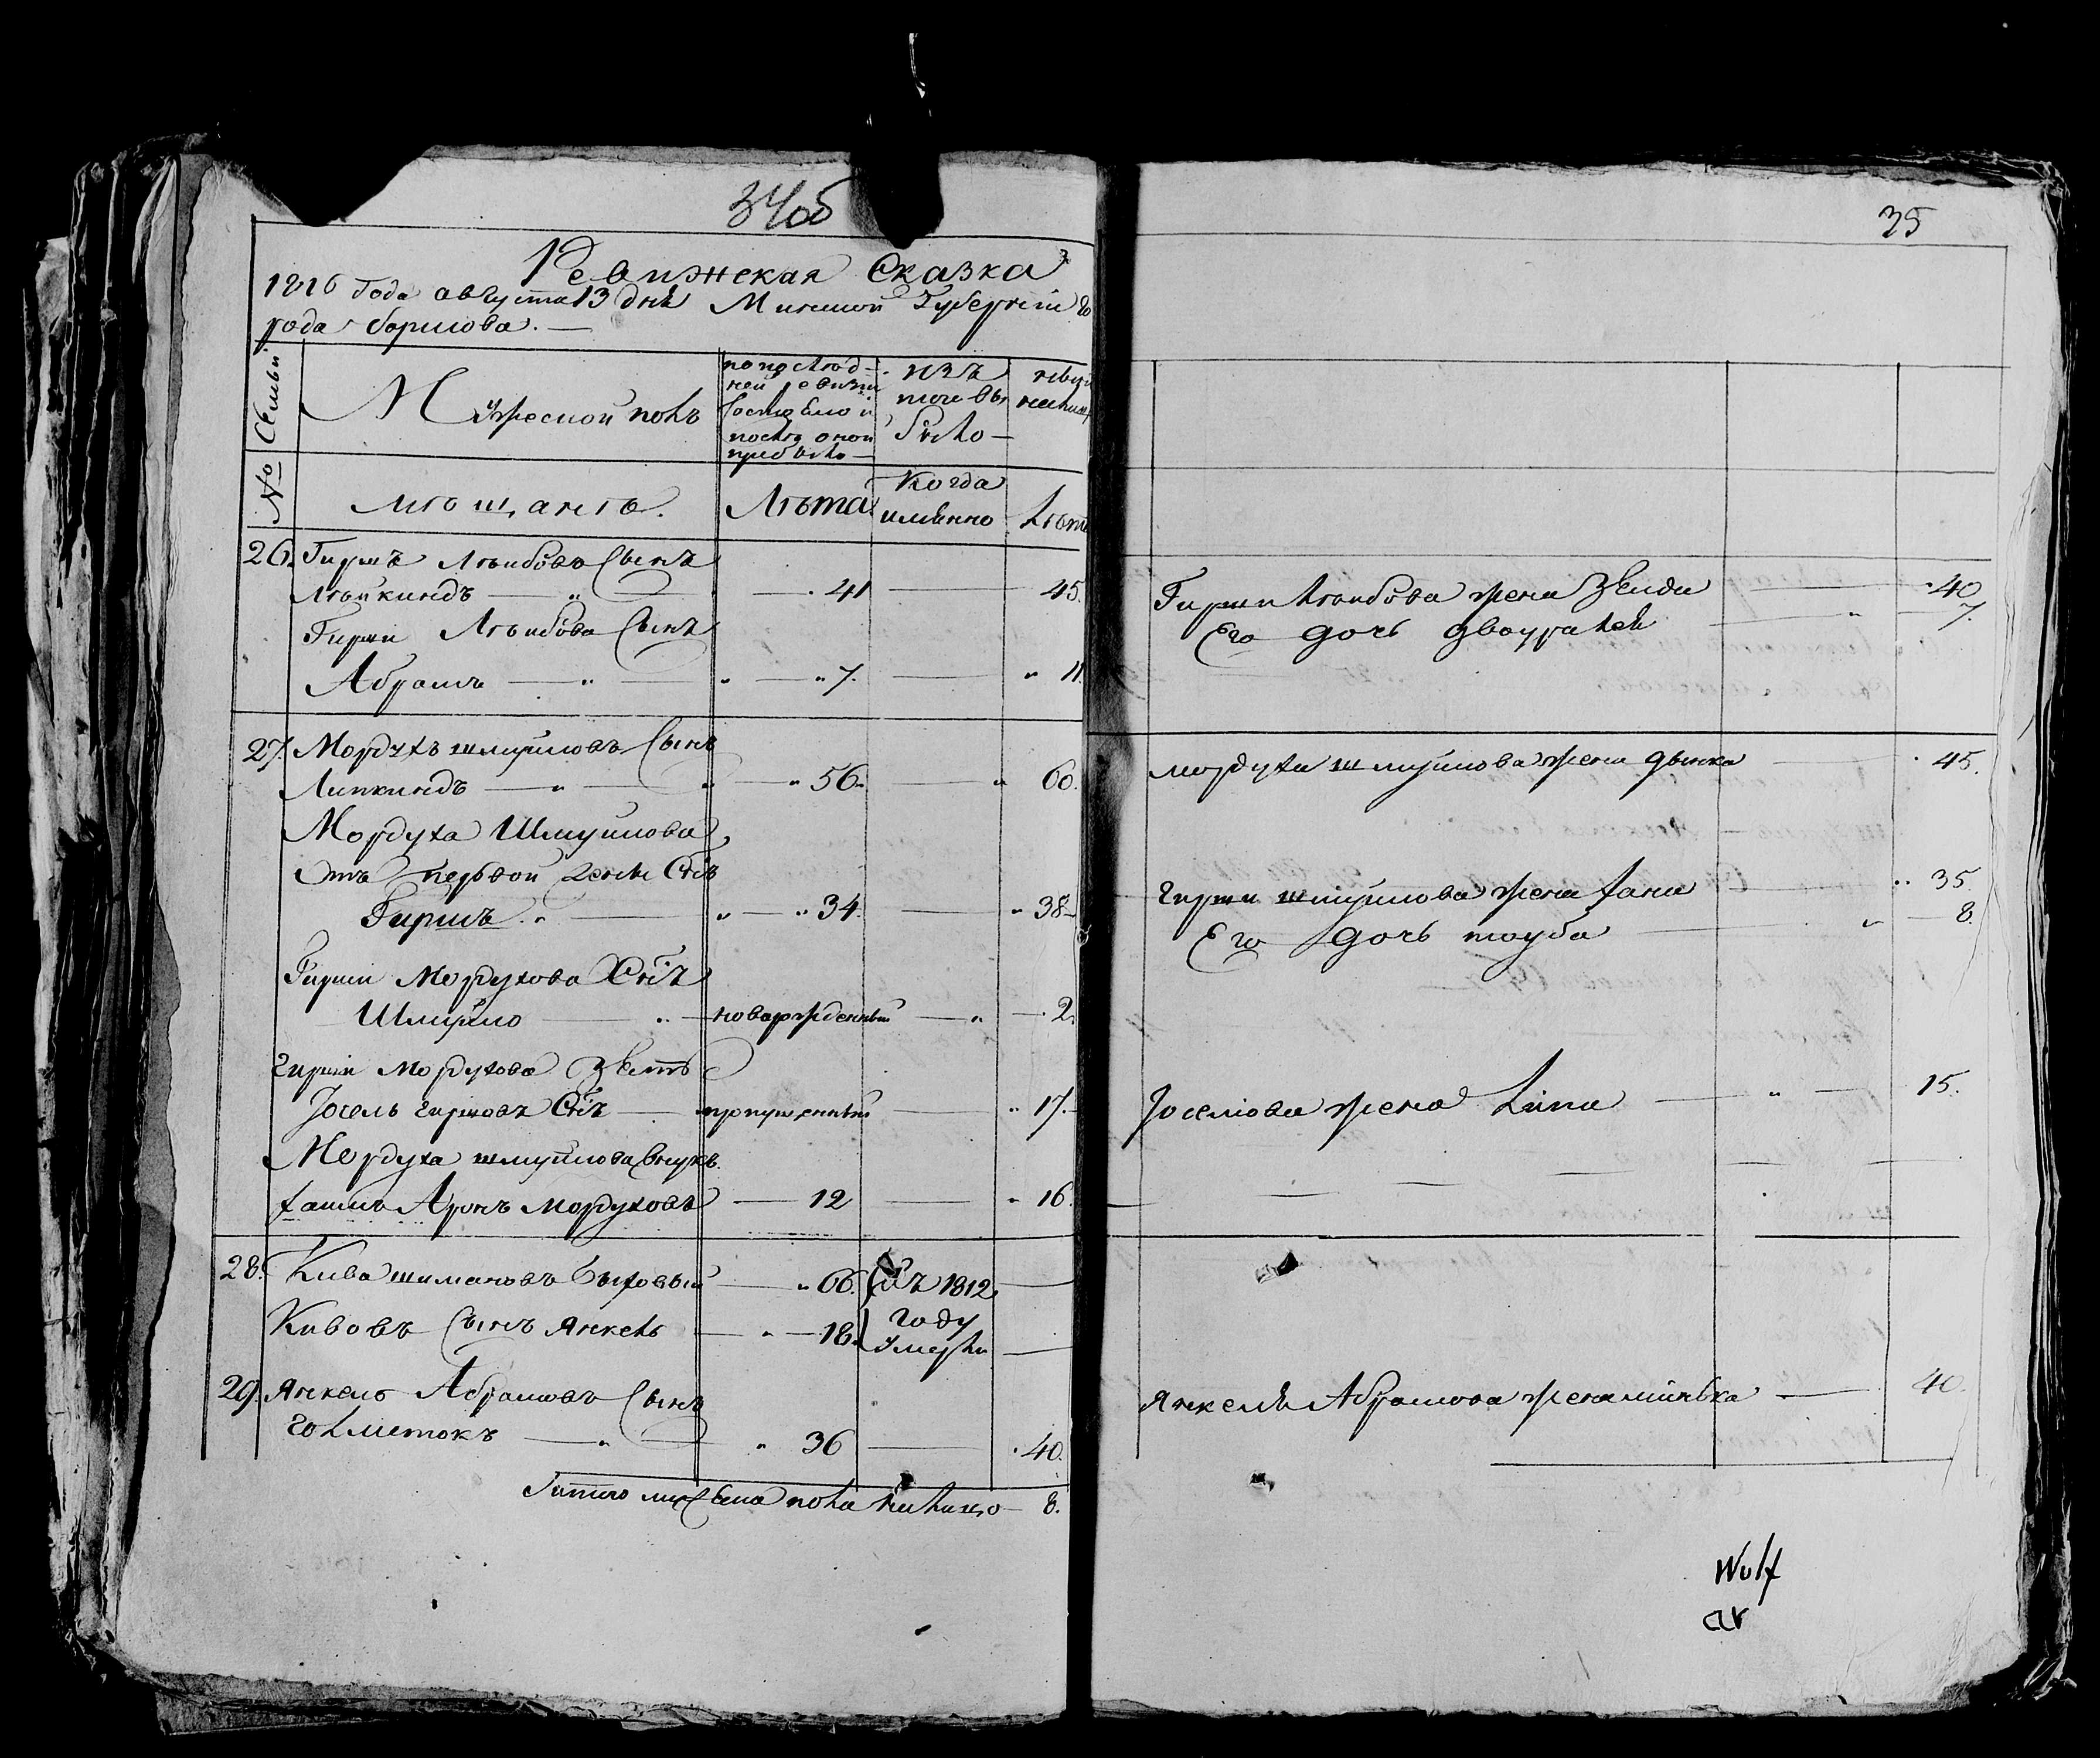 34об
Ревижская Сказка
1816 Года августа 13 дня Минской Губерніи Го
рода борисова.
№ Семьи
Мужеской полъ
по послед-
ней ревизіи
состояло и
после оной
прибыло
изъ
того вы
было
ныне
налицо
мещане.
Лета
Когда
именно
Лета
26. Гиршъ Леибовъ Сынъ
Леипкиндъ 41 45.
Гирши Леибова Сынъ
Абрамъ 7. 11.
27. Мордухъ шмуйловъ Сынъ
Липкиндъ 56. 60.
Мордуха Шмуилова
Отъ первой жены Снъ
Гиршъ 34. 38
Гирши Мордухова Снъ
Шмуйло новорожденный 2.
Гирши Мордухова Зеть
Іосель гиршовъ Снъ пропущенный 17.
Мордуха шмуйлова внукъ
хаимъ Аронъ Мордуховъ 12 16.
28. Кива шимановъ Быховый 66. въ 1812
Кивовъ Сынъ Янкель 18. году
умерли
29. Янкель Абрамовъ Сынъ
36 40.
Итого мужеска пола налицо 8.
35
Гирши Леибова жена 40
Его дочь двоуралей 7.
мордуха шмуйлова жена дынка 45.
гирши шмуйлова жена хана 35.
Его дочь тоуба 8.
Іоселіова жена Липа 15.
Янкеля Абрамова жена минька 40.
Wulf